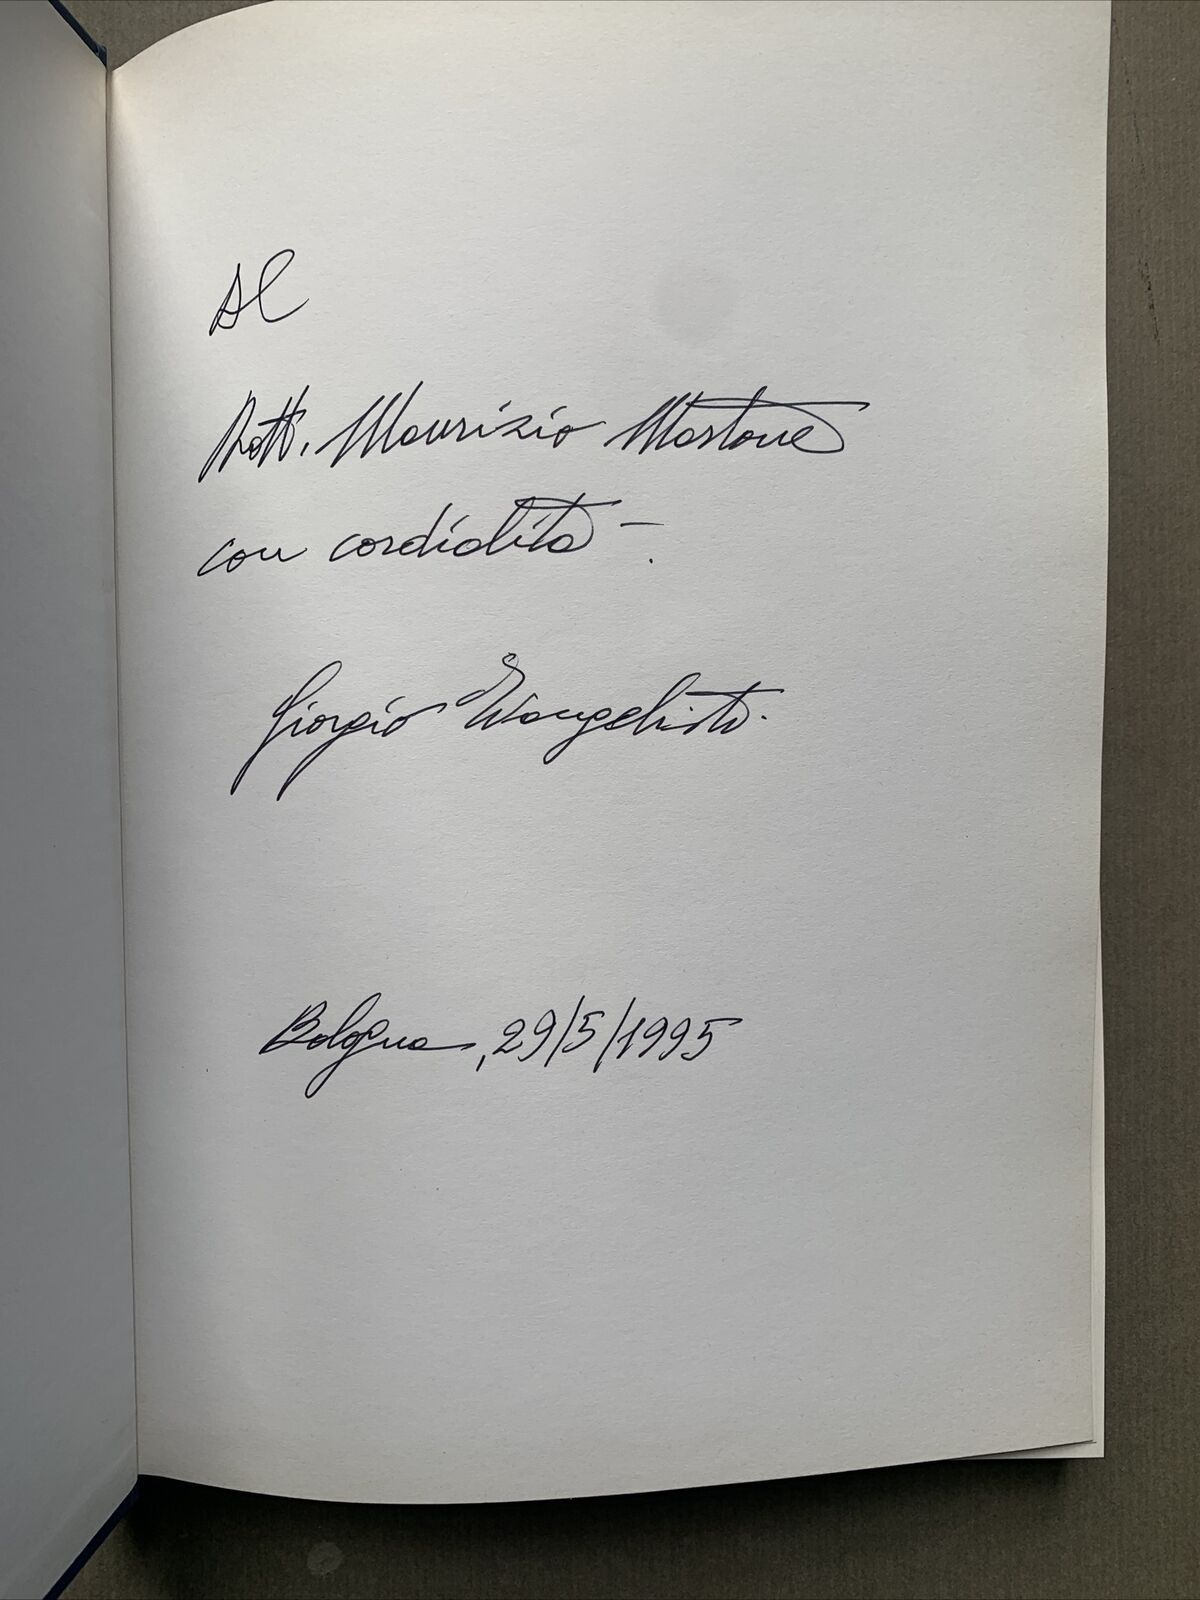 Al
Dott. Maurizio Martone
con cordialità -.
Giorgio Evangelisti.
Bologna, 29/5/1995